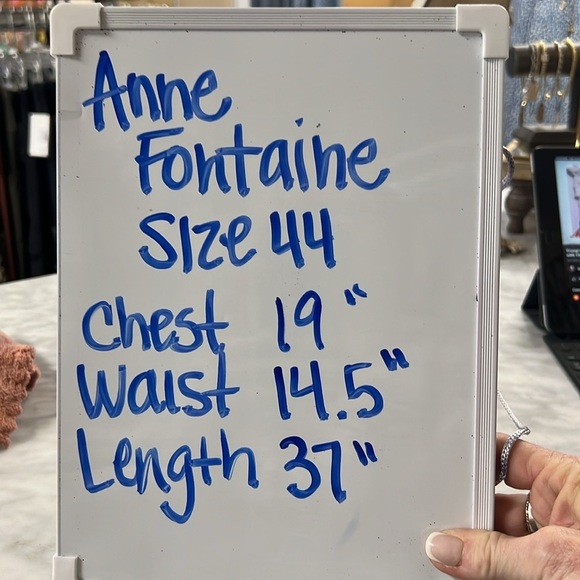 Anne
Fontaine
Size 44
Chest 19"
Waist 14.5"
Length 37"